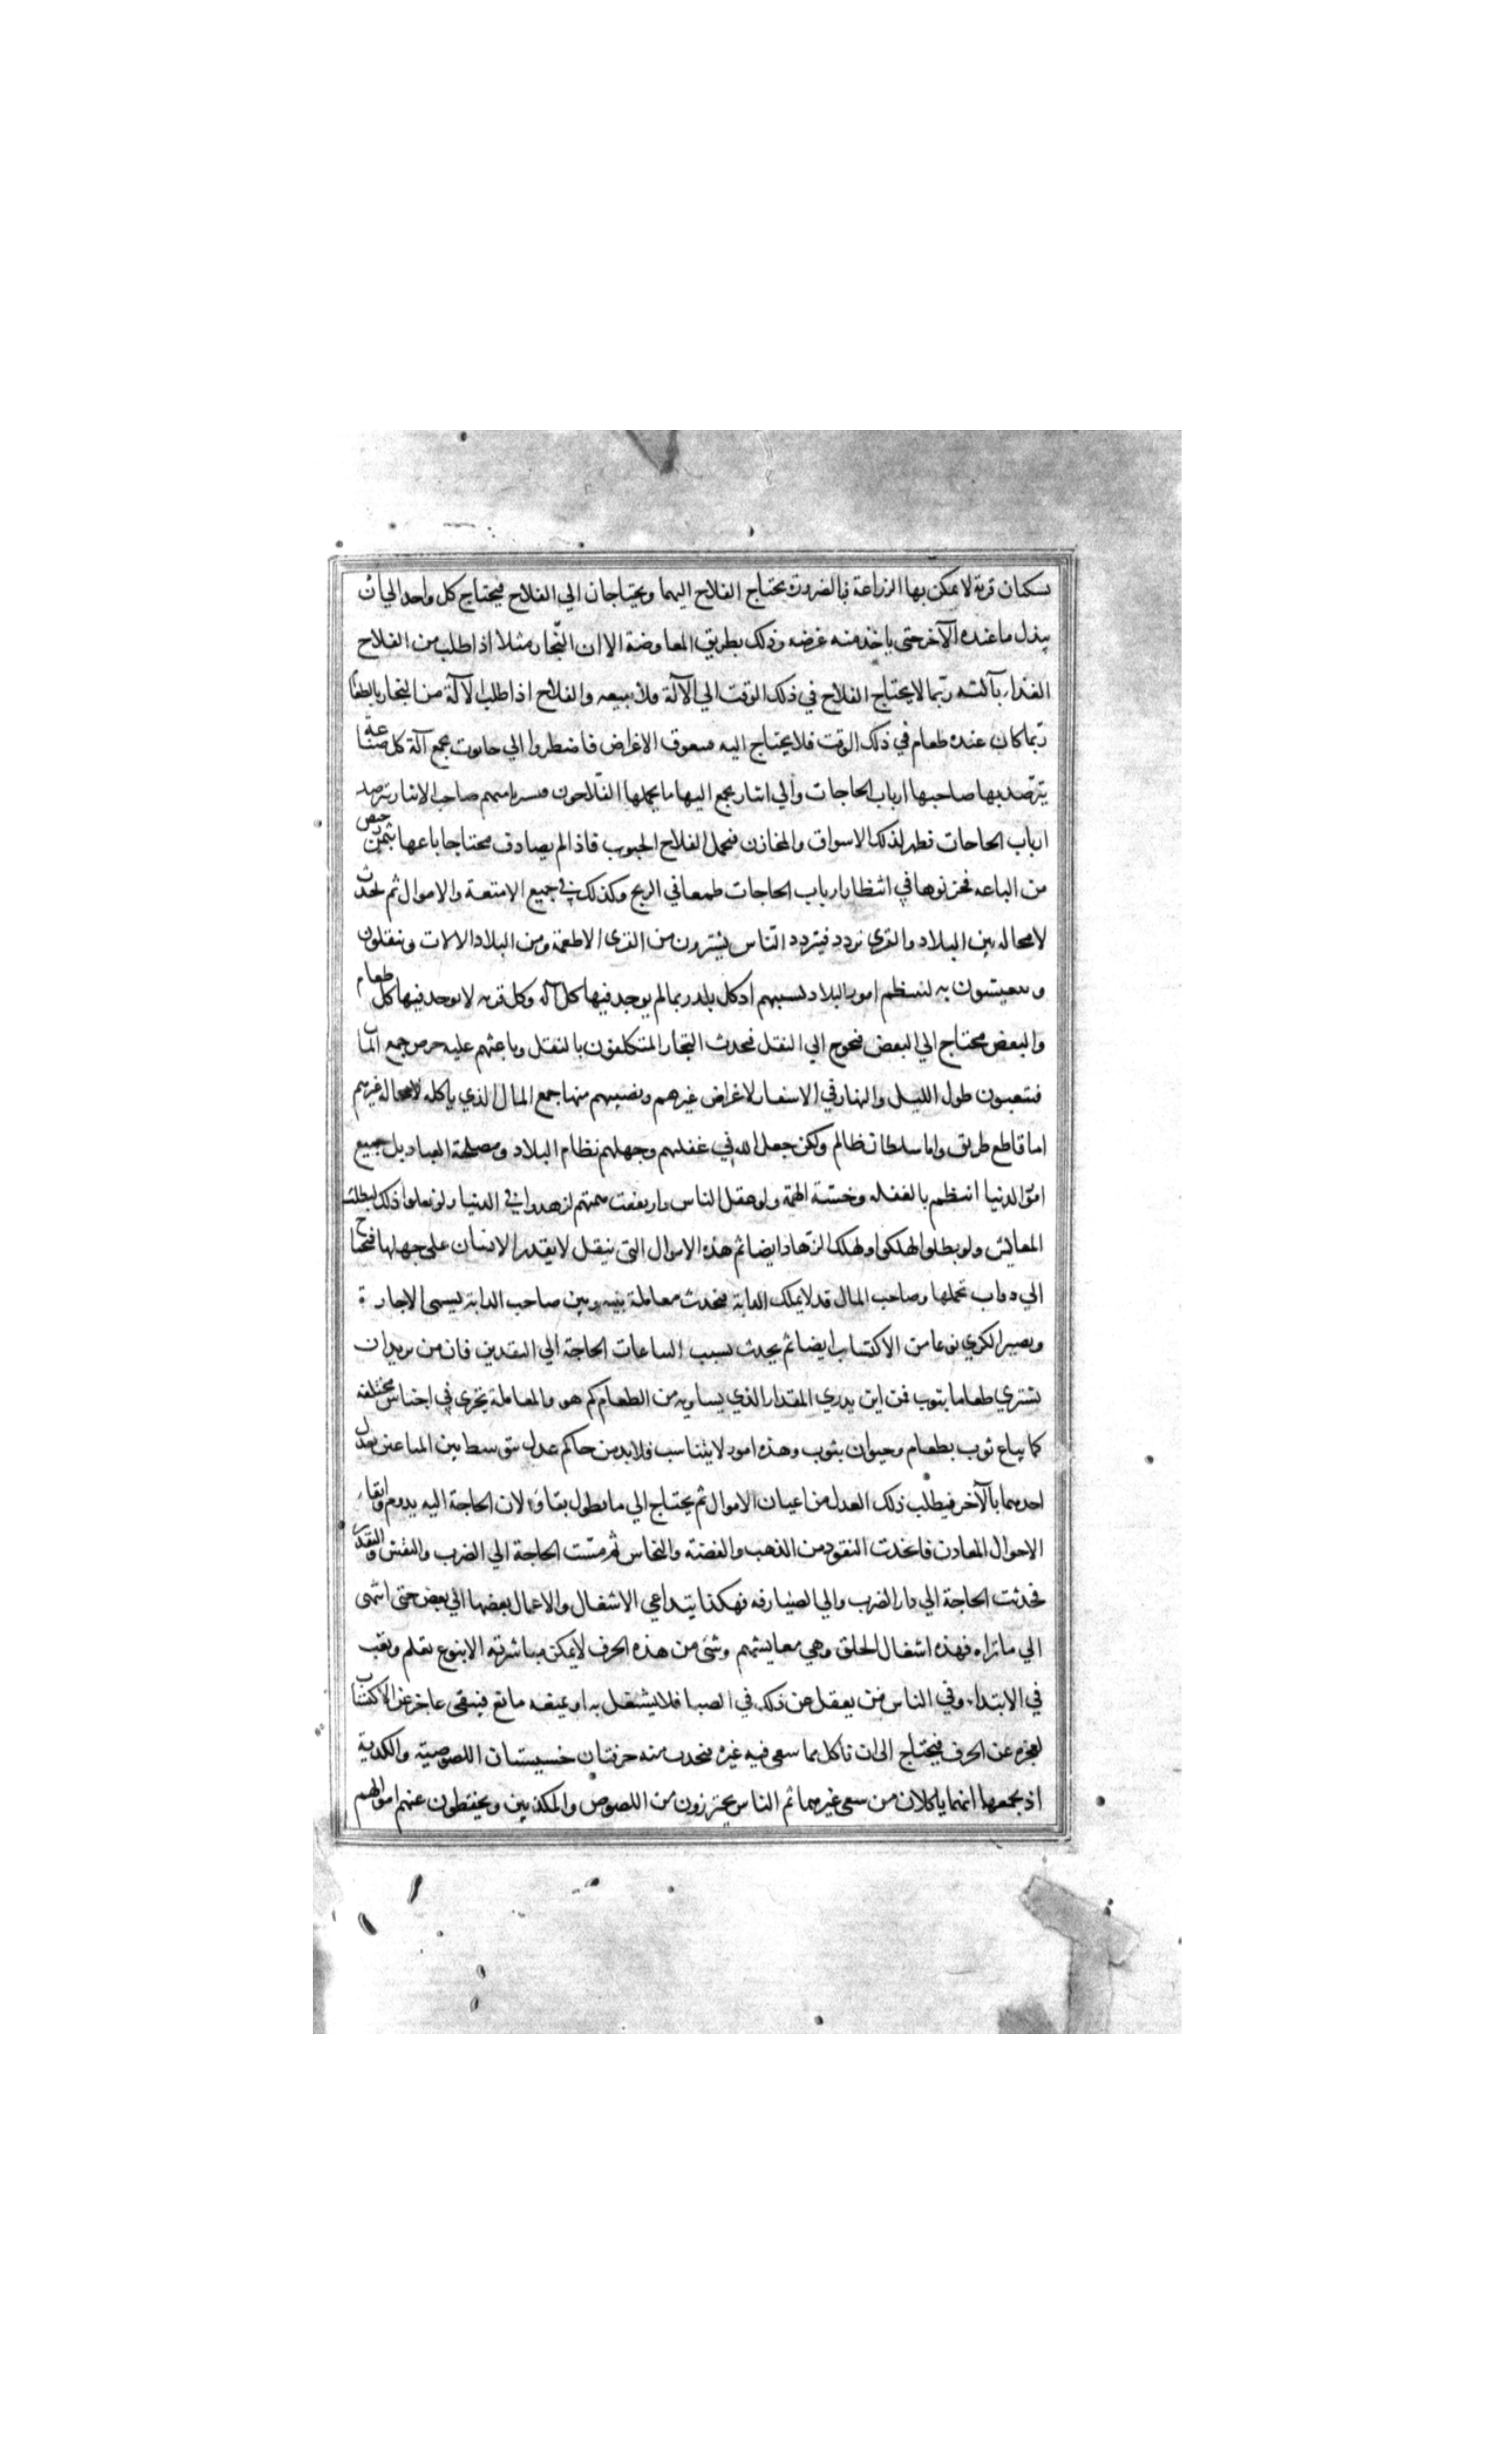 يسكنان قرية لا يمكن بها الزراعة فبالضرورة يحتاج الفلاح اليهما ويحتاجان الي الفلاح فيحتاج كل واحد الي ان
يبذل ما عنده الآخر حتى ياخذ منه غرضه وذلك بطريق المعاوضة الا ان النّجار مثلا اذا طلب من الفلاح
الغذاء بآلته ربّما لا يحتاج الفلاح في ذلك الوقت الي الآلة فلا يبيعه والفلاح اذا طلب الآلة من النجار بالطعا
ربّما كان عنده طعام في ذلك الوقت فلا يحتاج اليه فتعوق الاغراض فاضطروا الي حانوت بجمع آلة كل صناعة
يترصّد بها صاحبها ارباب الحاجات والي انبار بجمع اليها ما يحملها الفلّاحون فيشتريه منهم صاحب الانبار يترصد
ارباب الحاجات فظهر لذلك الاسواق والمخازن فيحمل الفلاح الحبوب فاذا لم يصادف محتاجا باعها بثمن رخيص
من الباعه فخزنوها في انتظار ارباب الحاجات طمعا في الربح وكذلك في جميع الامتعة والاموال ثم تحدث
لا محاله بين البلاد والقري تردد فيتردد النّاس يشترون من القرى الاطعمة ومن البلاد الالات وينقلون
ويتعيشون به لتنتظم امور البلاد بسببهم اذ كل بلد ربما لم يوجد فيها كل آلة وكل قريه لا يوجد فيها كل طعام
والبعض محتاج الي البعض فحوج الي النقل فحدث التجار المتكلفون بالنقل وباعثهم عليه حرص جمع المال
فيتعبون طول الليل والنهار في الاسفار لاغراض غيرهم ونصيبهم منها جمع المال الذي ياكله لا محاله غيرهم
اما قاطع طريق واما سلطان ظالم ولكن جعل الله في غفلتهم وجهلهم نظام البلاد ومصلحة العباد بل جميع
امور الدنيا انتظم بالغفله وخسّة الهمّة ولو عقل الناس وارتفعت همتهم لزهدوا في الدنيا ولو فعلوا ذلك لبطلت
المعايش ولو بطلوا لهلكوا ولهلك الزّهاد ايضا ثم هذه الاموال التي ينقل لا يقدر الانسان على حملها فتحتاج
الي دواب تحملها وصاحب المال قد لا يملك الدابة فيحدث معاملة بينه وبين صاحب الدابة يسمى الاجارة
ويصير الكري نوعا من الاكتساب ايضا ثم يحدث بسبب البياعات الحاجة الي النقدين فان من يريد ان
يشتري طعاما بثوب فمن اين يدري المقدار الذي يساويه من الطعام كم هو والمعاملة يجري في اجناس مختلفه
كما يباع ثوب بطعام وحيوان بثوب وهذه امور لا يتناسب فلابد من حاكم عدل يتوسط بين المتبايعين يعدل
احدهما بالآخر فيطلب ذلك العدل من اعيان الاموال ثم يحتاج الي ما يطول بقاؤه لان الحاجة اليه يدوم وابقاء
الاموال المعادن فاتخذت النقود من الذهب والفضة والنحاس ثم مسّت الحاجة الي الضرب والنقش والتقدير
فحدثت الحاجة الي دار الضرب والي الصيارفه فهكذا يتداعي الاشغال والاعمال بعضها الي بعض حتى انتهى
الي ما تراه فهذه اشغال الخلق وهي معايشهم وشئ من هذه الحرف لا يمكن مباشرته الا بنوع تعلم وتعب
في الابتداء وفي الناس من يغفل عن ذلك في الصبا فلا يشتغل به او يمنعه مانع فيبقى عاجزا عن الاكتساب
لعجزه عن الحرف فيحتاج الي ان ياكل مما سعى فيه غيره فيحدث منه حرفتان خسيستان اللصوصية والكدية
اذ يجمعهما انهما ياكلان من سعي غيرهما ثم الناس يحترزون من اللصوص والمكدبين ويحفظون عنهم اموالهم